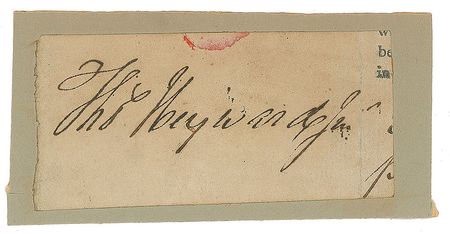 w
be
in
Tho.s Heyward Jun.r
p